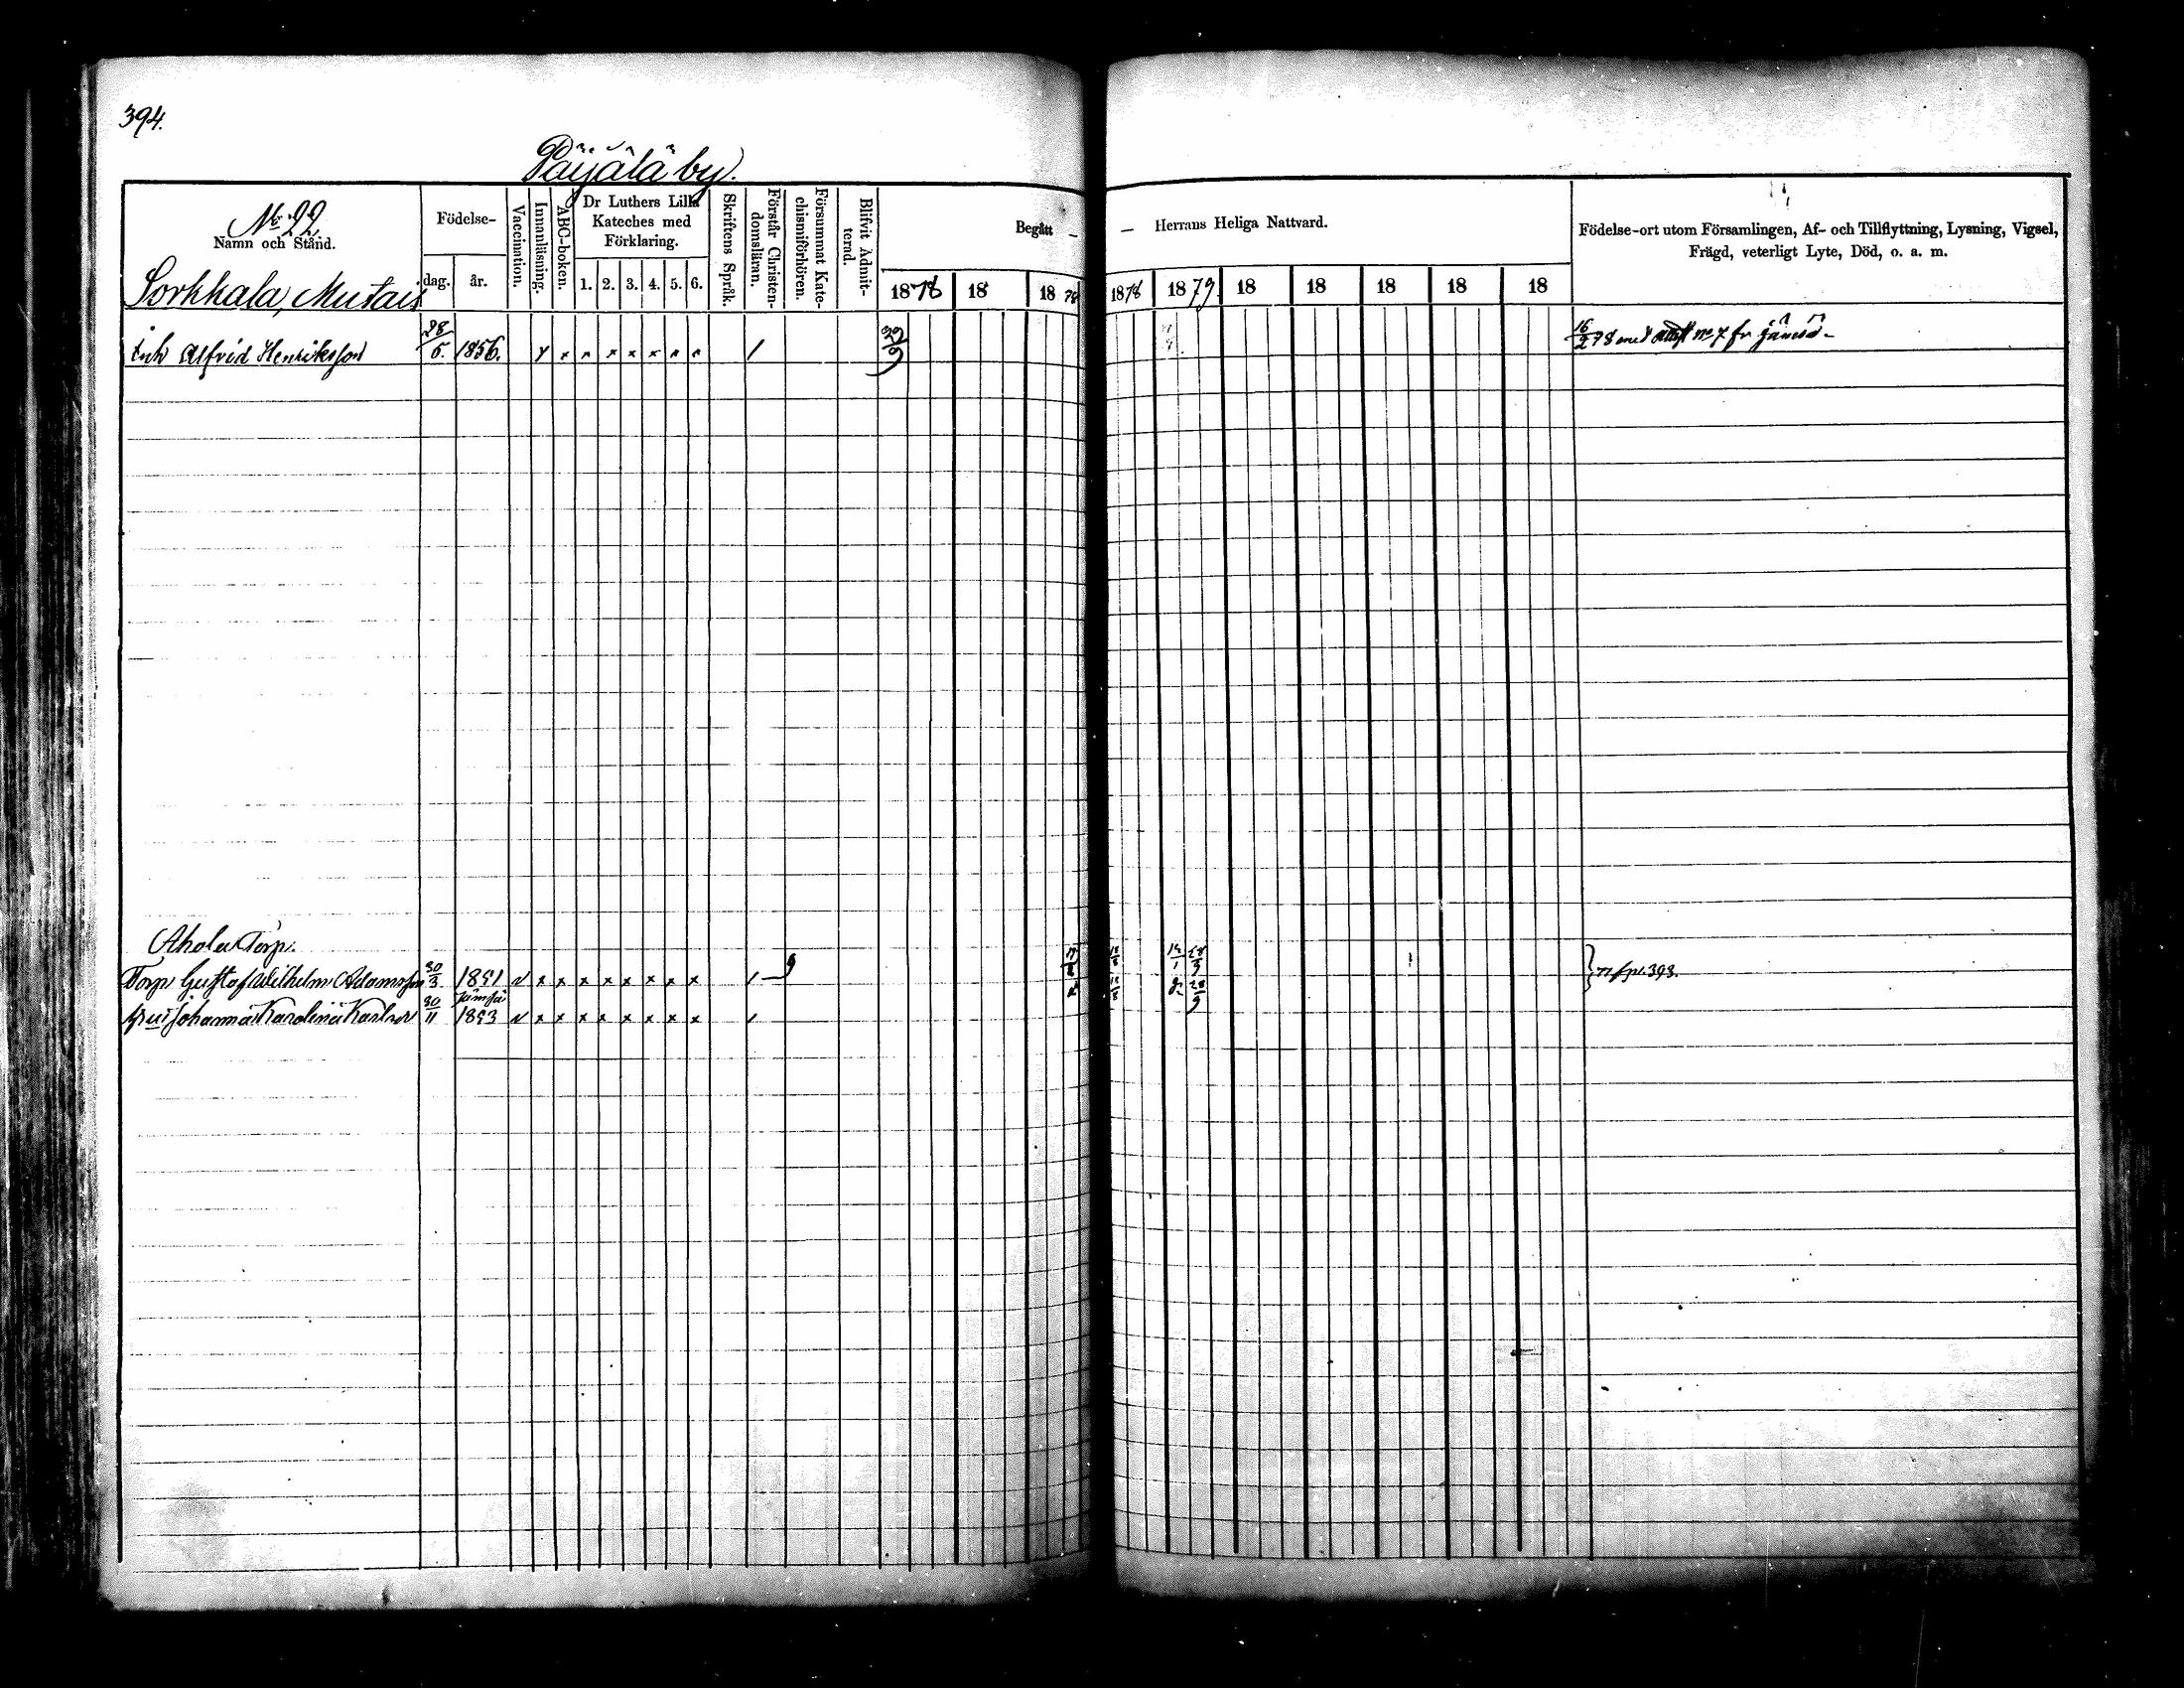 394.
Päijälä by.
No 22.
Namn och Stånd.
Födelse-
dag. år.
Vaccination.
Innanläsning.
ABC-boken.
Dr Luthers Lilla Kateches med Förklaring.
1. 2. 3. 4. 5. 6.
Skriftens Språk.
Förstår Christendomsläran.
Försummat Katechismiförhören.
Blifvit Admitterad.
Begått — — Herrans Heliga Nattvard.
1878 18 18 78 1878 1879 18 18 18 18 18
Födelse-ort utom Församlingen, Af- och Tillflyttning, Lysning, Vigsel,
Frägd, veterligt Lyte, Död, o. a. m.
Sorkkala, Mutais
Inh Alfrid Henriksson 28/5. 1856. 16/2 78 med no 7 fr Jämsä
Ahola Torp.
Torp Gustaf Wilhelm Adamsson 30/3 1851
Jämsä
hust Johanna Karolina Karlsdr 30/11 1853
p. 393.